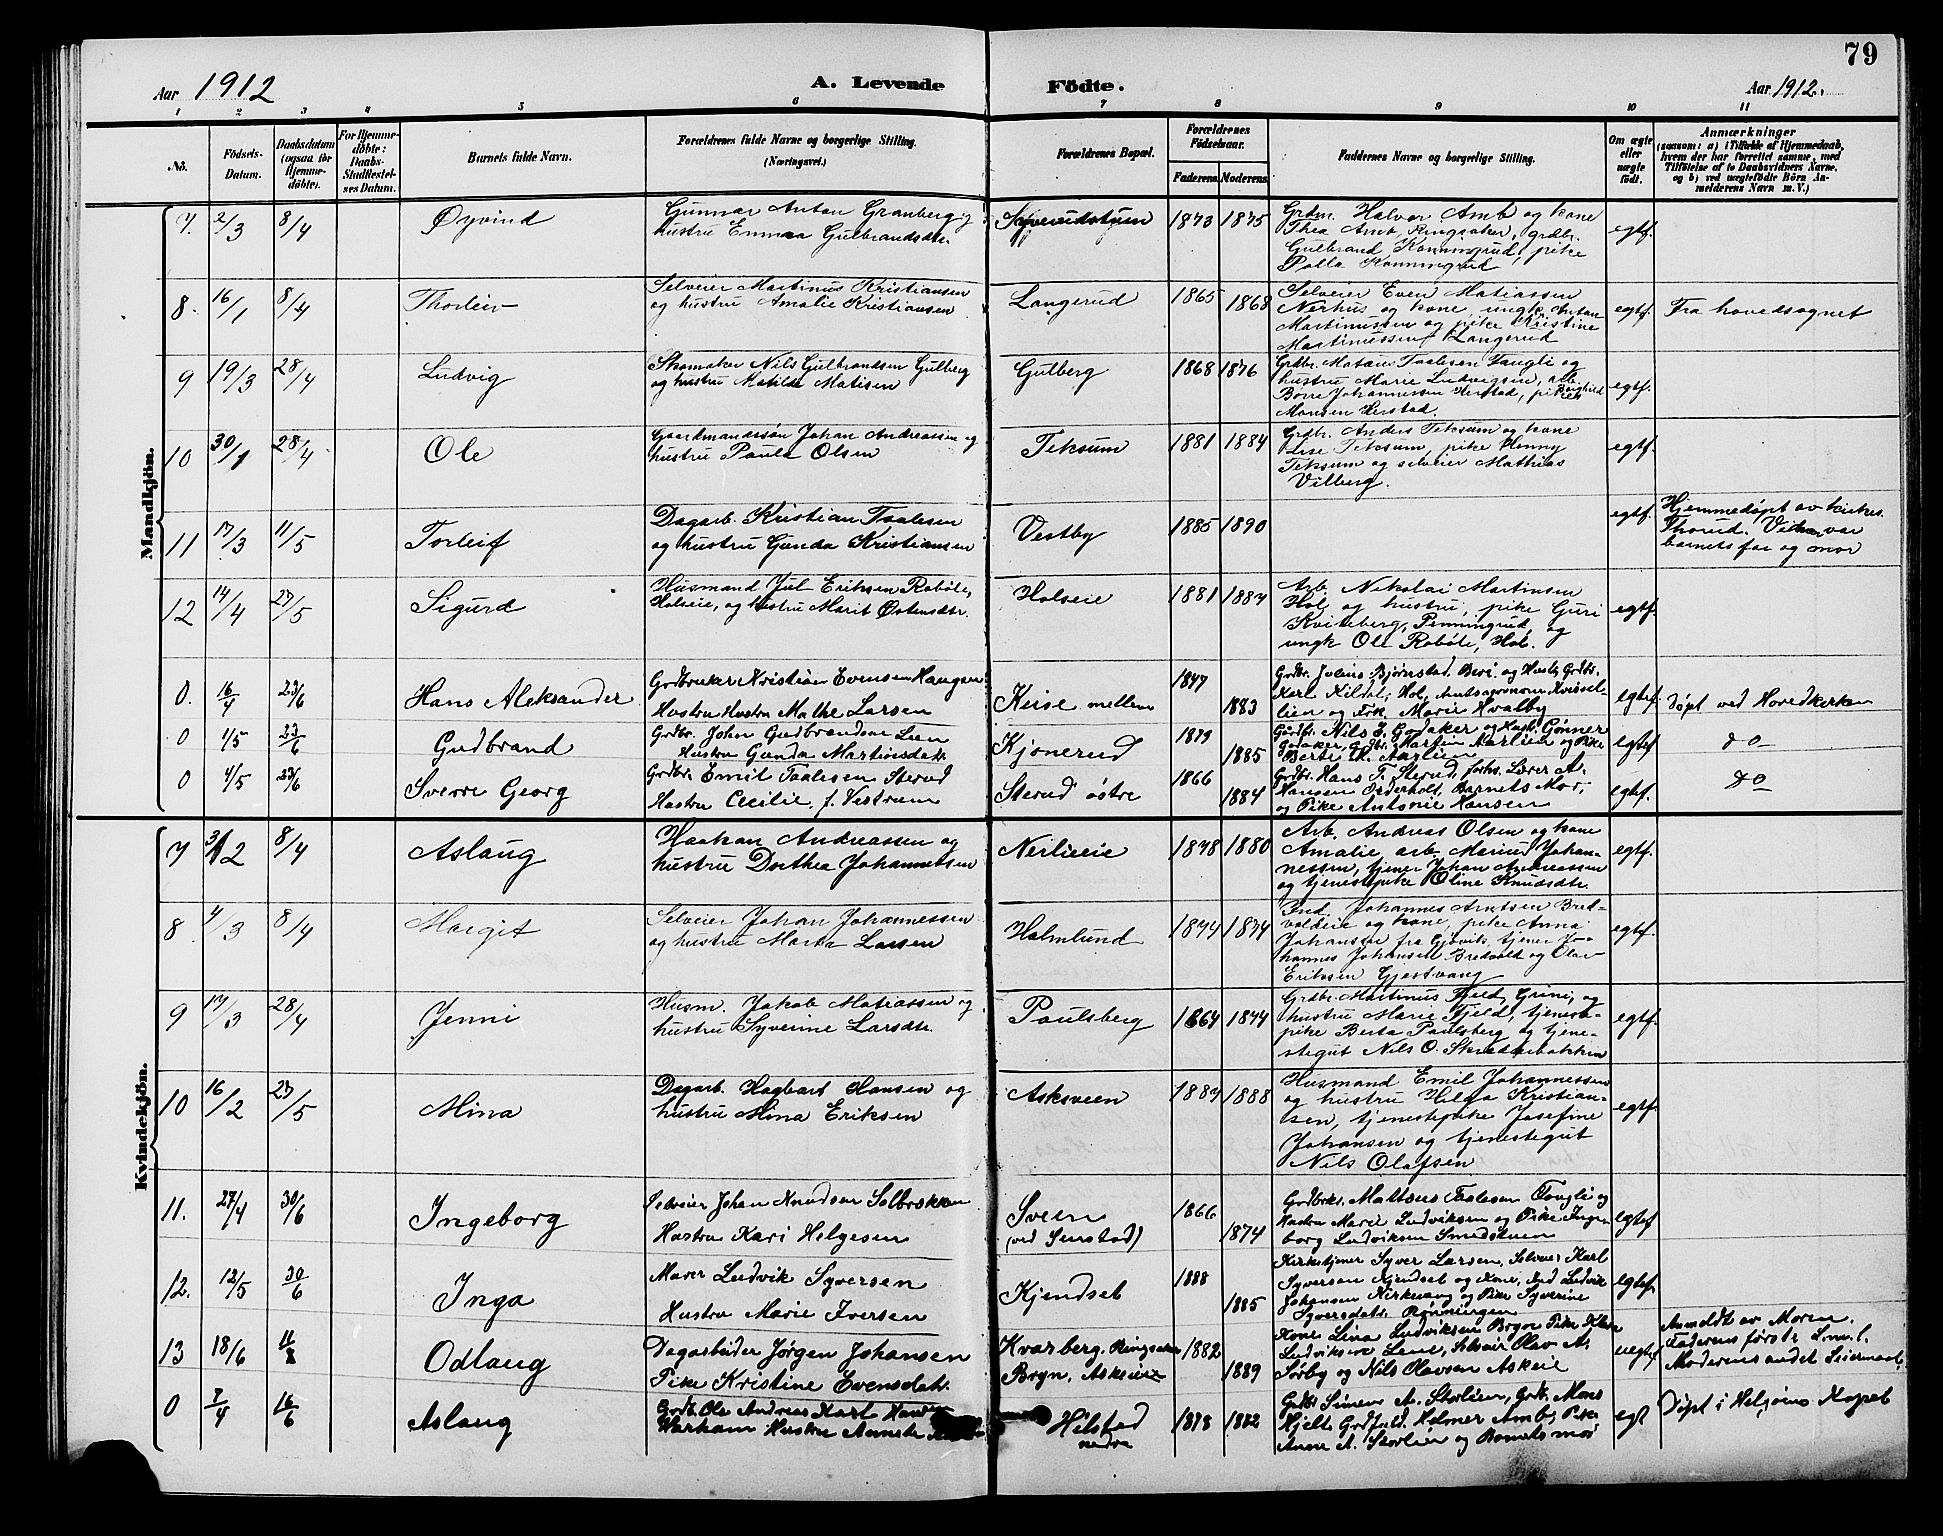 79
Aar 1912 A. Levende Födte. Aar 1912.
1 2 3 4 5 6 7 8 9 10 11
No. Födsels-Datum. Daabsdatum (ogsaa for Hjemmedöbte). For Hjemmedöbte: Daabs-Stadfæstelses Datum. Barnets fulde Navn. Forældrenes fulde Navne og borgerlige Stilling. (Næringsvei.) Forældrenes Bopæl. Forældrenes Födselsaar. Faderens. Moderens. Faddernes Navne og borgerlige Stilling. Om ægte eller uægte födt. Anmærkninger (saasom: a) i Tilfælde af Hjemmedaab, hvem der har forrettet samme, med Tilföielse af to Daabsvidners Navne, og b) ved uægtefödte Börn Anmelderens Navn m. V.)
Mandkjön.
7. 2/3 8/4 Øyvind
Gunnar Anton Granberg og
hustru Emma Gulbrandsdtr.
1873 1875
Grdm. Halvor Amb og kone
Thea Amb, Ringsaker, grdbr.
Gulbrand Konningrud, pike
Palla Konningrud
egtf.
8. 16/1 8/4 Thorleiv
Selveier Martinus Kristiansen
og hustru Amalie Kristiansen
Langerud 1865 1868
Selveier Even Matiassen
Nerhus og kone, ungk. Anton
Martinussen og pike Kristine
Martinussen Langerud
egtf. Fra hovedsognet
9 19/3 28/4 Ludvig
Skomaker Nils Gulbrandsen Gulberg
og hustru Matilde Matisen
Gulberg 1868 1876
Grdbr. Mataus Taalesen Taugli og
hustru Marie Ludvigsen, arb.
Borre Johannessen Herstad, pike Borghild
Monsen Herstad.
egtf.
10 30/1 28/4 Ole
Gaardmandssøn Johan Andreassen og
hustru Paula Olsen
Teksum 1881 1884
Grdbr. Anders Teksum og kone
Lise Teksum, pike Henny
Teksum og selveier Mathias
Vilberg.
egtf.
11 17/3 11/5 Torleif
Dagarb. Kristian Taalesen
og hustru Gunda Kristiansen
Vestby 1885 1890
egtf. Hjemmedøpt av kirkes.
Thorud. Vidner var
barnets far og mor
12 14/4 27/5 Sigurd
Husmand Jul Eriksen Rabøle,
Holseie, og hustru Marit Østensdtr.
Holseie 1881 1887
Arb. Nikolai Martinsen
Hol og hustru, pike Guri
Kviteberg, Penningrud, og
ungk Ole Rabøle, Hol.
egtf.
0. 16/4 23/6 Hans Aleksander
Grdbruker Kristian Evensen Haugen
Hustru Mathe Larsen
Keise mellem 1847 1883
Grdbr. Julius Bjørnstad, Beri og Hustr. Grdbr.
Karl Kildal, Hol, Amtsagronom Kvissel-
lien og Frk. Marie Hvalby
egtef. Døpt ved Hovedkirken
0 1/5 23/6 Gudbrand
Grdbr. John Gudbrandsen Lien
Hustru Gunda Martinsdatr.
Kjonerud 1879 1885
Gardbr. Nils E. Godaker og Hustr. Gønner
Godaker, grdbr. Martin Aarlien og Pike
Berte M. Aarlien
egtef do
0 4/5 23/6 Sverre Georg
Grdbr. Emil Taalesen Sterud
Hustru Cecilie, f. Vestrum
Sterud østre 1866 1884
Grdbr. Hans T. Sterud, forhv. Lærer A.
Hansen Orderholt, Barnets Mor,
og Pike Antonie Hansen
egtf. do
Kvindekjön.
7 3/12 8/4 Aslaug
Haakan Andreassen og
hustru Dorthea Johannessen
Nerlieeie 1878 1880
Arb. Andreas Olsen og kone
Amalie arb. Marius Johan-
nessen, tjener Johan Andreassen
og tjenestpike Oline Knudsdtr.
egtf.
8. 4/3 8/4 Margit
Selveier Johan Johannessen
og hustru Marta Larsen
Holmlund 1874 1874
Ind. Johannes Arntsen Bred-
voldeie og kone, pike Anna
Johansen fra Gjøvik, tjener Jo-
hannes Johansen Bredvold og Olav
Eriksen Gjestvang
egtf.
9 17/3 28/4 Jenni
Husm. Jakob Matiassen og
hustru Syverine Larsdtr.
Paulsberg 1864 1874
Grdbr. Martinus Fjeld, Grini, og
hustru Marie Fjeld, tjeneste-
pike Berta Paulsberg og tjene-
stegut Nils O. Skrædderbakken
egtf.
10 16/2 27/5 Mina
Dagarb. Hagbart Hansen og
hustru Mina Eriksen
Asksveen 1887 1888
Husmand Emil Johannessen
og hustru Hilda Kristian-
sen, tjenestepike Josefine
Johansen og tjenestegut
Nils Olafsen
egtf.
11. 27/4 30/6 Ingeborg
Selveier Johan Knudsen Solbrekken
Hustru Kari Helgesen
Sveen
(ved Simstad) 1866 1874
Grdbrkr. Mattæus Taalesen Taugli og
Hustru Marie Ludviksen og Pike Inge-
borg Ludviksen Smedstuen
egtef
12. 12/5 30/6 Inga
Murer Ludvik Syversen
Hustru Marie Iversen
Kjendset 1888 1885
Kirketjener Syver Larsen, Selveier Karl
Syversen Kjendset og Kone, Ind Ludvik
Johansen Kirkevang og Pike Syverine
Syversdatr. Rønningen
egtef
13 18/6 Odlaug
Dagarbeider Jørgen Johansen
Pike Kristine Evensdatr.
Kvarberg, Ringsaker
Bryn, Askeie 1882 1889
Kone Lina Ludviksen Bryn Pike Klara
Ludviksen Lene, Selveier Olav A.
Sørby og Nils Olavsen Askeie
uegtef Anmeldt av Moren.
Faderens første Lml.
Moderens andet Leiermaal
0 7/4 16/6 Aslaug
Grdb. Ole Andreas Karl
Hustru Annete
Hilstad
nedre 1878 1882
Grdbr. Simen A. Storlien, Grdb. Mons
Hjelt, Grdfold. Helmer Amb, Pike
Anne A. Storlien og Barnets mor
egt Døpt i Helgøens Kapel